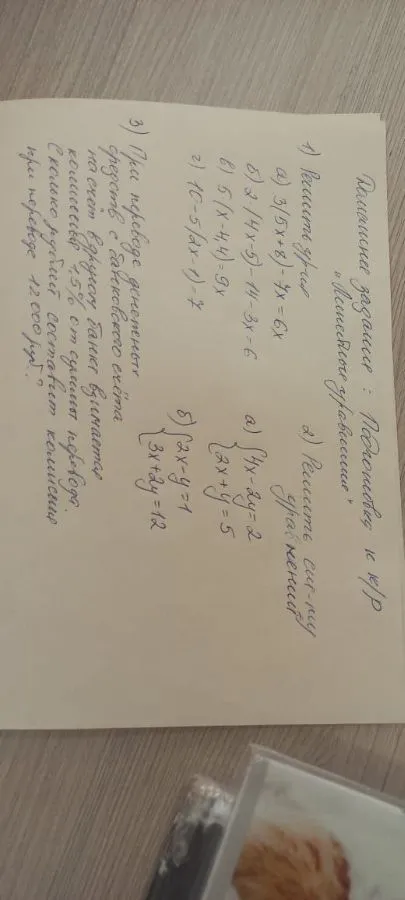 Домашнее задание: Подготовка к к/р
"Линейные уравнения"
1) Решить ур-ия
а) 3(5x+8)-7x=6x
б) 2(4x-5)-14-3x=6
в) 5(x-4,4)=9x
г) 10-5(2x-1)=7
2) Решить сис-му
уравнений
а) {4x-2y=2
2x+y=5
б) {2x-y=1
3x+2y=12
3) При переводе денежных
средств с банковского счёта
на счет в другом банке взимается
комиссия 1,5% от суммы перевода.
Сколько рублей составит комиссия
при переводе 12 000 руб.?